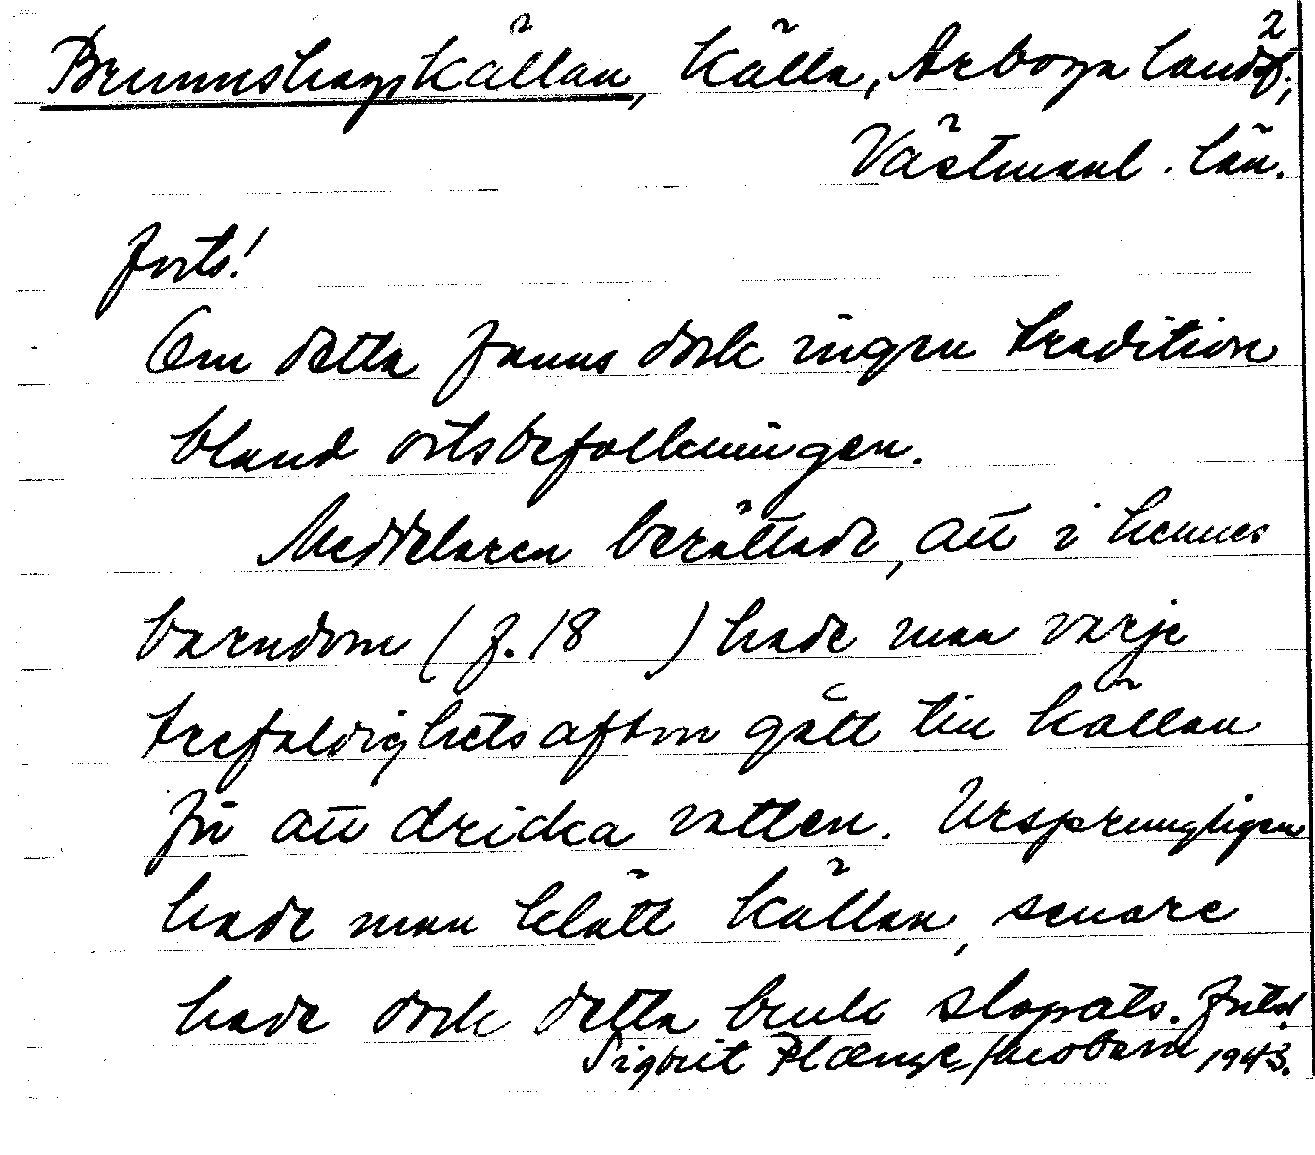 2
Brunnshagskällan, källa, Arboga landsf.,
Västmanl. län.
Forts!
Om detta fanns dock ingen tradition
bland ortsbefolkningen.
Meddelaren berättade, att i hennes
barndom (f. 18 ) hade man varje
trefaldighetsafton gått till källan
för att dricka vatten. Ursprungligen
hade man klätt källan, senare
hade dock detta bruk slopats. Forts!
Sigbrit Plænge Jacobson 1943.